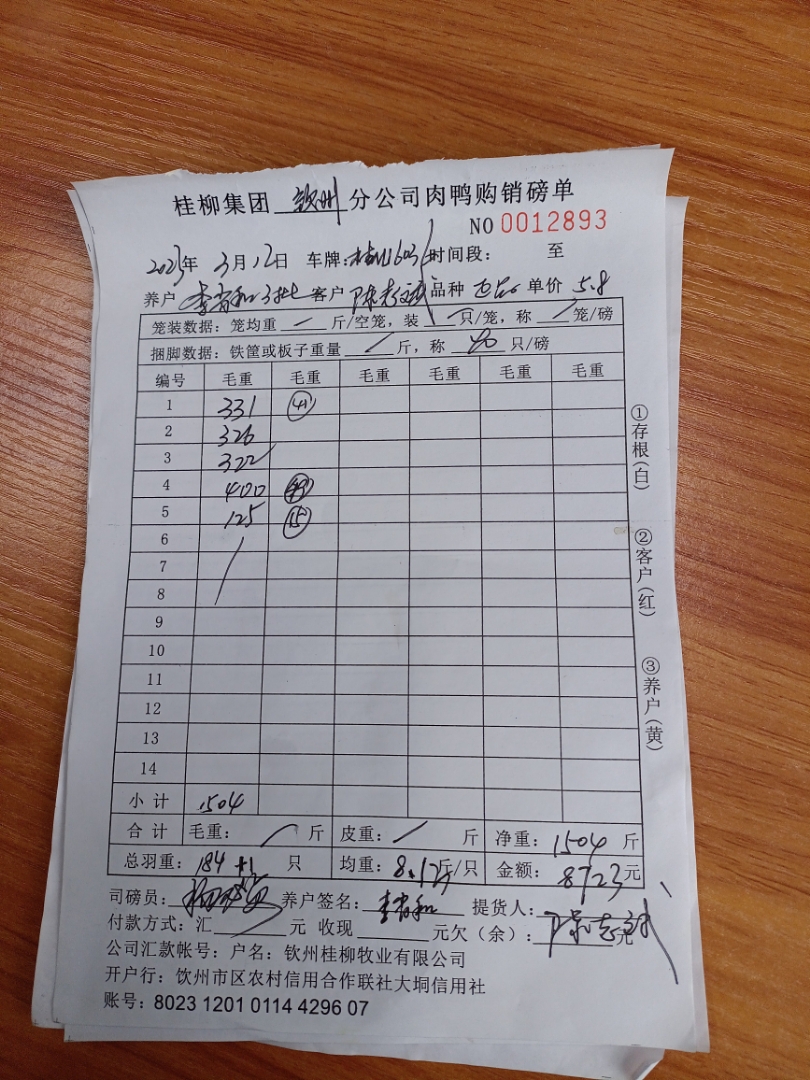 桂柳集团 钦州 分公司肉鸭购销磅单
NO 0012893
2023年 3月12日 车牌: 时间段: 至
养户 李育和 3批 客户 陈志斌 品种 单价 5.8
笼装数据: 笼均重 斤/空笼, 装 只/笼, 称 笼/磅
捆脚数据: 铁筐或板子重量 斤, 称 40 只/磅
编号 毛重 毛重 毛重 毛重 毛重 毛重
1 331 41
2 326
3 322
4 400
5 125 15
6
7
8
9
10
11
12
13
14
小计 1504
合计 毛重: 斤 皮重: 斤 净重: 1504 斤
总羽重: 184 +1 只 均重: 8.17斤/只 金额: 8723元
司磅员: 养户签名: 李育和 提货人: 陈志斌
付款方式: 汇 元 收现 元欠(余): 元
公司汇款帐号: 户名: 钦州桂柳牧业有限公司
开户行: 饮州市区农村信用合作联社大垌信用社
账号: 8023 1201 0114 4296 07
①存根(白)
②客户(红)
③养户(黄)